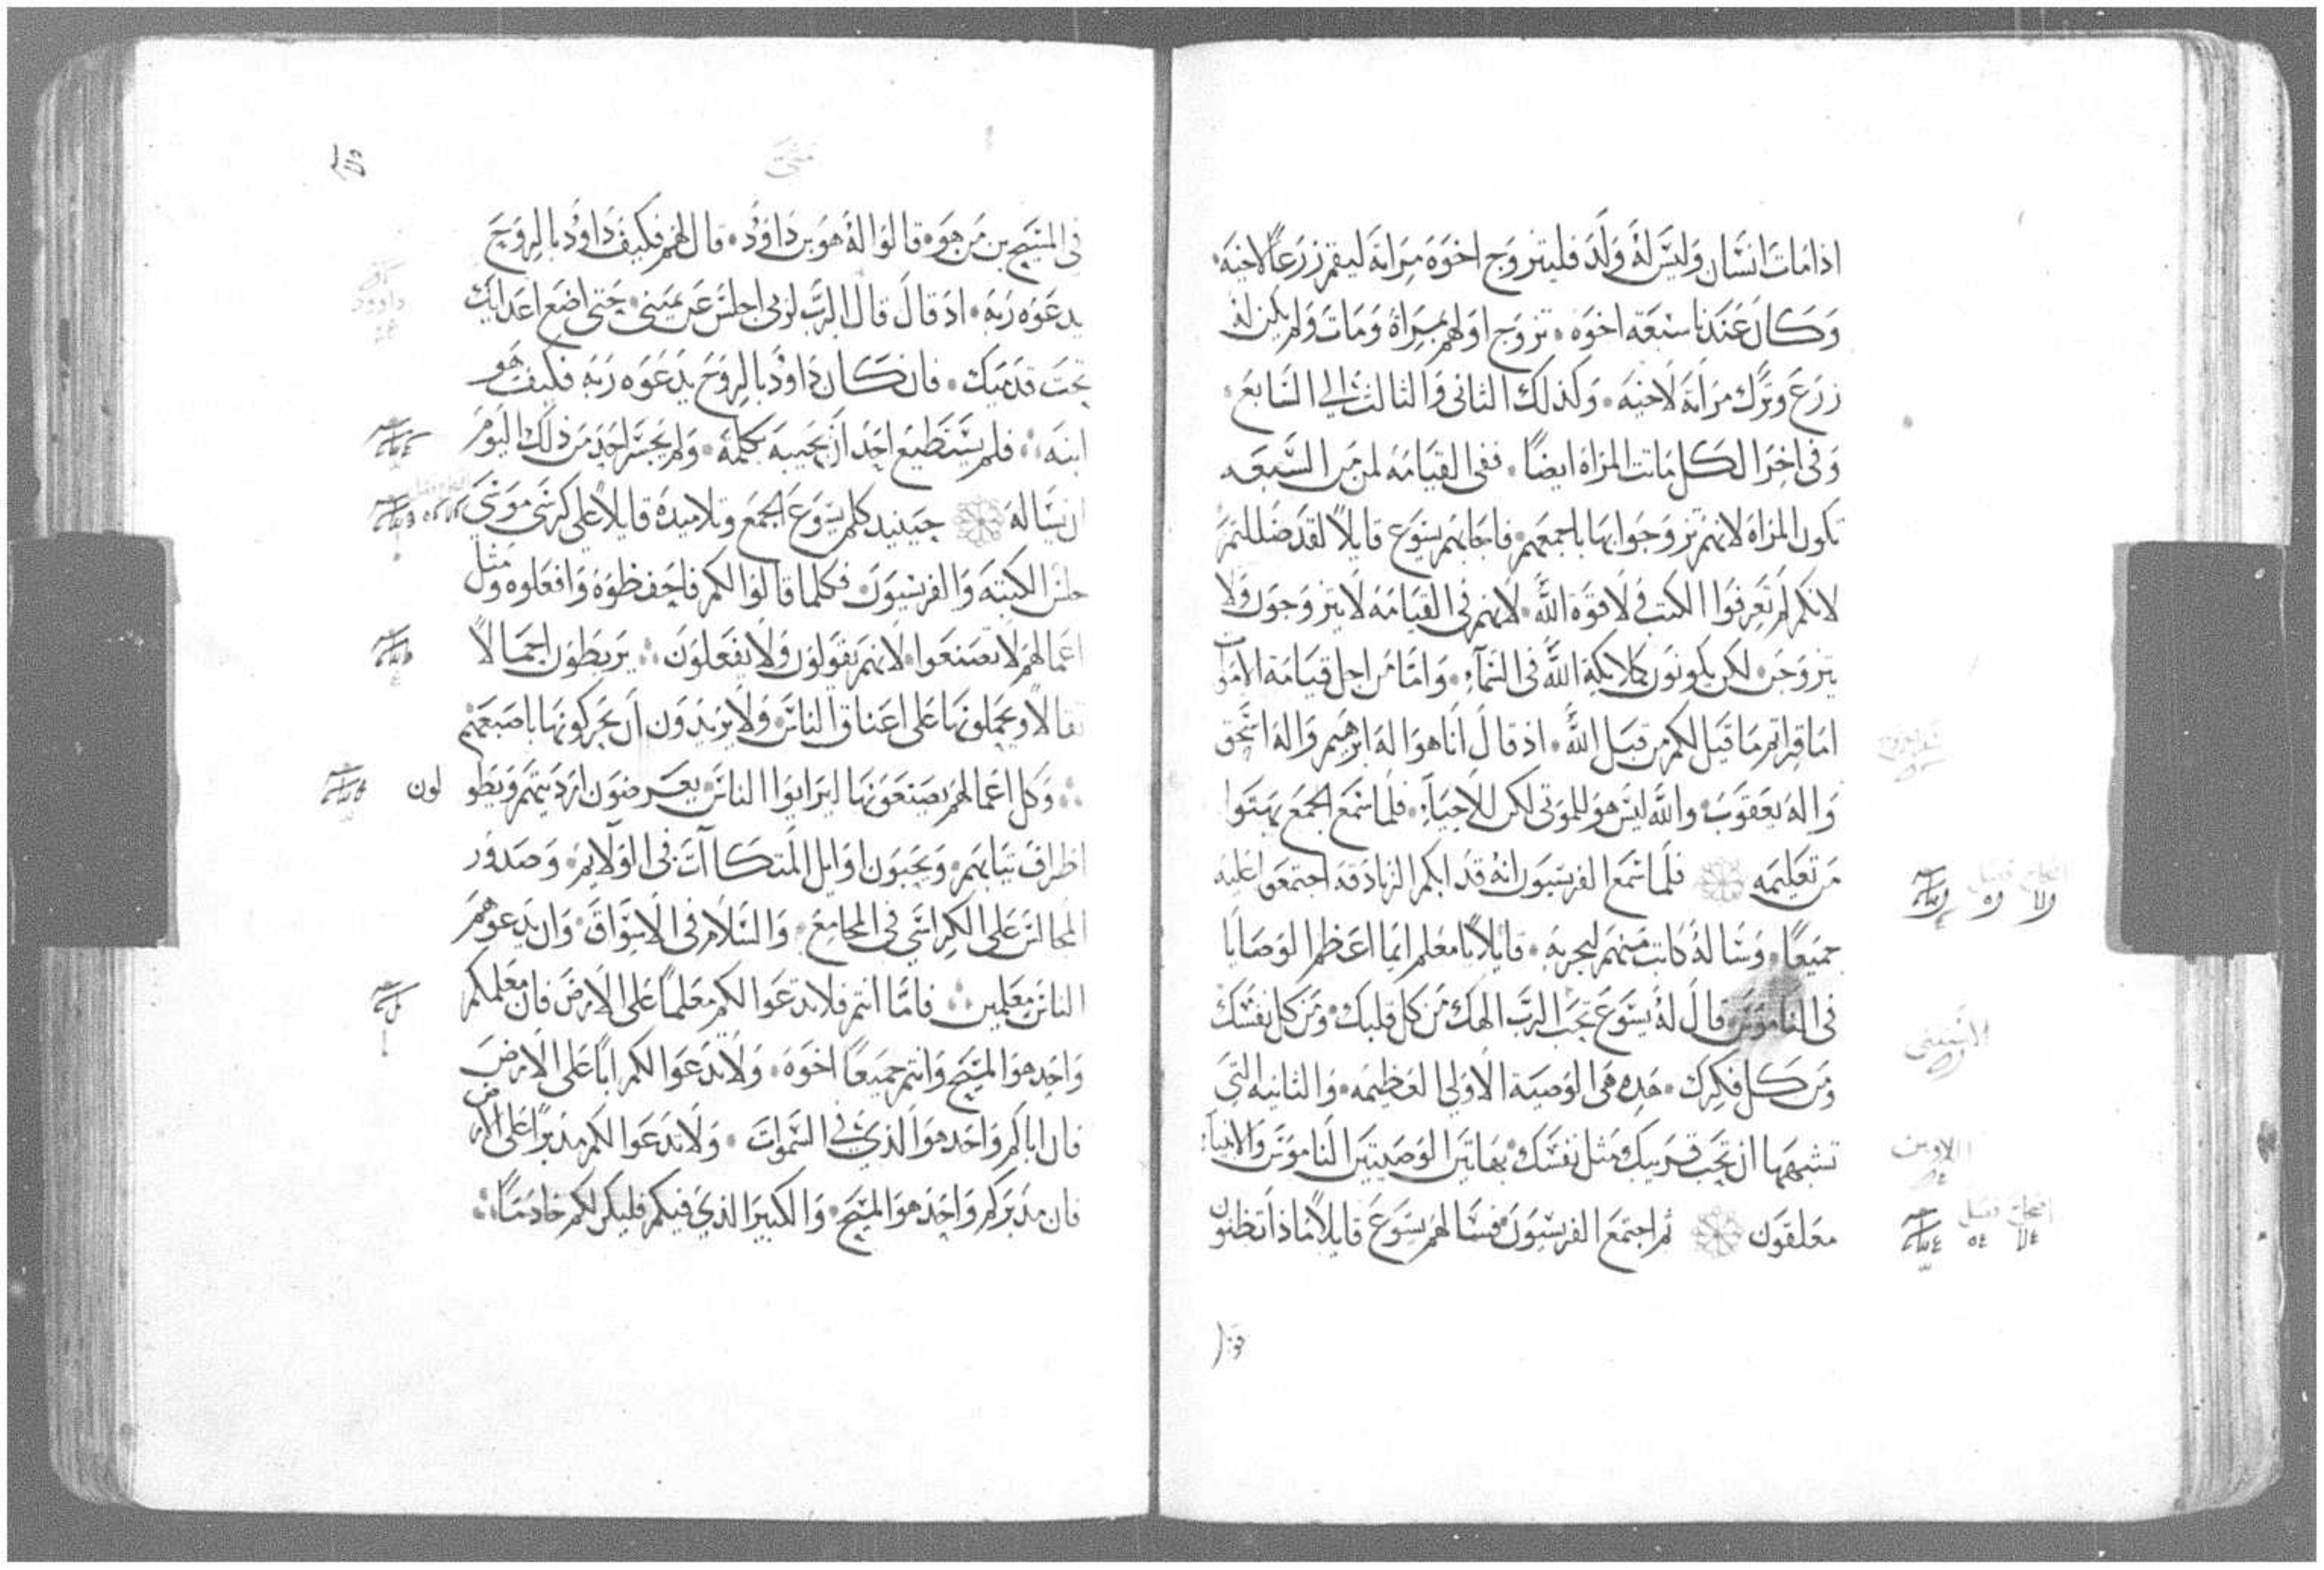 اذا مات انسان وليس له ولد فليتزوج اخوه مراته ليقم زرعًا لاخيه
وكان عندنا سبعه اخوه تزوج اولهم بمراة ومات ولم يكن له
زرع وترك مراته لاخيه وكذلك الثانى والثالث الي السابع
وفى اخر الكل ماتت المراه ايضًا ففى القيامه لمن من السبعه
تكون المراه لانهم تزوجوا بها باجمعهم فاجابهم يسوع قايلاً لقد ضللتم
لانكم لم تعرفوا الكتب ولا قوة الله لانهم فى القيامه لا يتزوجون ولا
يتزوجن لكن يكونون كملايكة الله فى السمآء واما من اجل قيامة الاموات
اما قراتم ما قيل لكم من قبل الله اذ قال انا هو اله ابرهيم واله اسحق
واله يعقوب والله ليس هو للموتى لكن للاحيآء فلما سمع الجمع بهتوا
من تعليمه فلما سمع الفريسيون انه قد ابكم الزنادقه اجتمعوا عليه
جميعًا وساله كاتب منهم ليجربه قايلاً يا معلم ايما اعظم الوصايا
فى الناموس قال له يسوع تحب الرب الهك من كل قلبك ومن كل نفسك
ومن كل فكرك هذه هى الوصية الاولى العظيمه والثانيه التي
تشبهها ان تحب قريبك مثل نفسك بهاتين الوصيتين الناموس والانبيآء
معلقون ثم اجتمع الفريسيون فسالهم يسوع قايلاً ماذا تظنون
متى
فى المسيح بن من هو قالوا له هو بن داوُد قال لهم فكيف داوُد بالروح
يدعوه ربه اذ قال قال الرب لربى اجلس عن يمينى حتى اضع اعدايك
تحت قدميك فان كان داوُد بالروح يدعوه ربه فكيف هو
ابنه فلم يستطيع احد ان يجيبه بكلمه ولم يجسر احد من ذلك اليوم
ان يساله حينيد كلم يسوع الجمع وتلاميده قايلاً على كرسى موسى
جلس الكتبه والفريسيون فكلما قالوا لكم فاحفظوه وافعلوه ومثل
اعمالهم لا تصنعوا لانهم يقولون ولا يفعلون يربطون احمالاً
ثقالاً ويحملونها على اعناق الناس ولا يريدون ان يحركونها باصبعهم
وكل اعمالهم يصنعونها ليرايوا الناس يعرضون ارديتهم ويطولون
اطراف تيابهم ويحبون اوايل المتكاآت فى الولايم وصدور
المجالس على الكراسي في المجامع والسلام فى الاسواق وان يدعوهم
الناس معلمين فاما انتم فلا تدعوا لكم معلمًا على الارض فان معلمكم
واحد هو المسيح وانتم جميعًا اخوه ولا تدعوا لكم ابًا على الارض
فان اباكم واحد هو الذي في السموات ولا تدعوا لكم مدبرًا على الارض
فان مدبركم واحد هو المسيح والكبير الذي فيكم فليكن لكم خادمًا